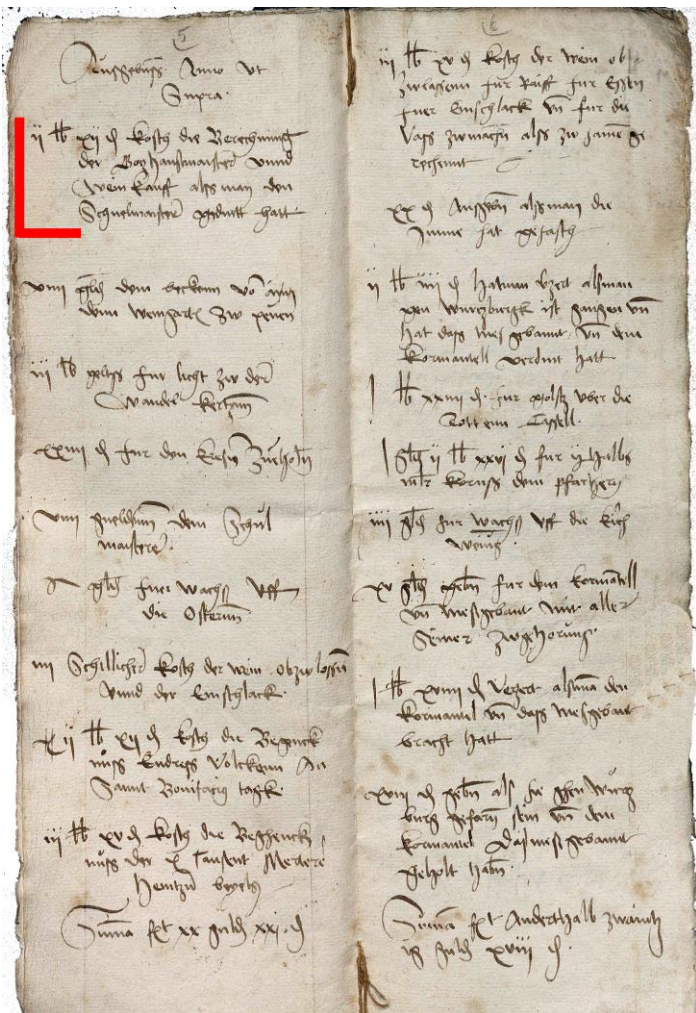 Außgebenß Anno Vt
Supra.
ij lb xij d kosth die Berechnung
der Gotzhaußmaister vnnd
Weinkauff alß man den
Schuelmaister gedingtt hatt
viiij guld dem beckenn vo
denn weingartt zw
iij lb geltss fur licht zw der
Wandel kertzenn
xxiiij d fur den
viiij gueldenn dem Schul
maistere.
guld fuer wachss vff
die Osternn
iiij Schillicher kosth der wein obzwlossen
vnnd der Einschlack.
ij lb xij d kosth die Begenck
nuss Endress Volckenn An
Sannt Bonifacij tagk.
iij lb xv d kosth die Beghenck
nuss der x Tausent Mertere
Heintzen
Summa fct xx guld xxj d
iij lb xv d kosth der wein ob
zwlassenn fur Raiff fur Essen
fuer Einschlack vn fur die
Vass zwmachn alss zw samen ge
rechennt
xx d Außgebn alß man die
Imme hat gefasth
ij lb iiij d alsman
gen wurtzburgk ist gangen vn
hat dass mesgebannt vn dem
Kormantell verdint hatt
j lb xxiiij d fur vber die
j guld ij lb xxvj d fur ij halbs
mlr Kornss dem pfarhern
iiij guld fur wachss vff die kirch
weing
xv guld gebn fur dem kormantell
vn mesgebant mit aller
Seiner zwgehorung.
j lb xviiij d verzert alsman den
kormantel vn dass mesgebant
bracht hatt
xviij d gebn als sie ghen wurtz
burg gefarn sein vn dem
kormantel Das mesgebannt
geholt habn.
Summa fct Anderthalb zwaintz
ig guld xviij d.